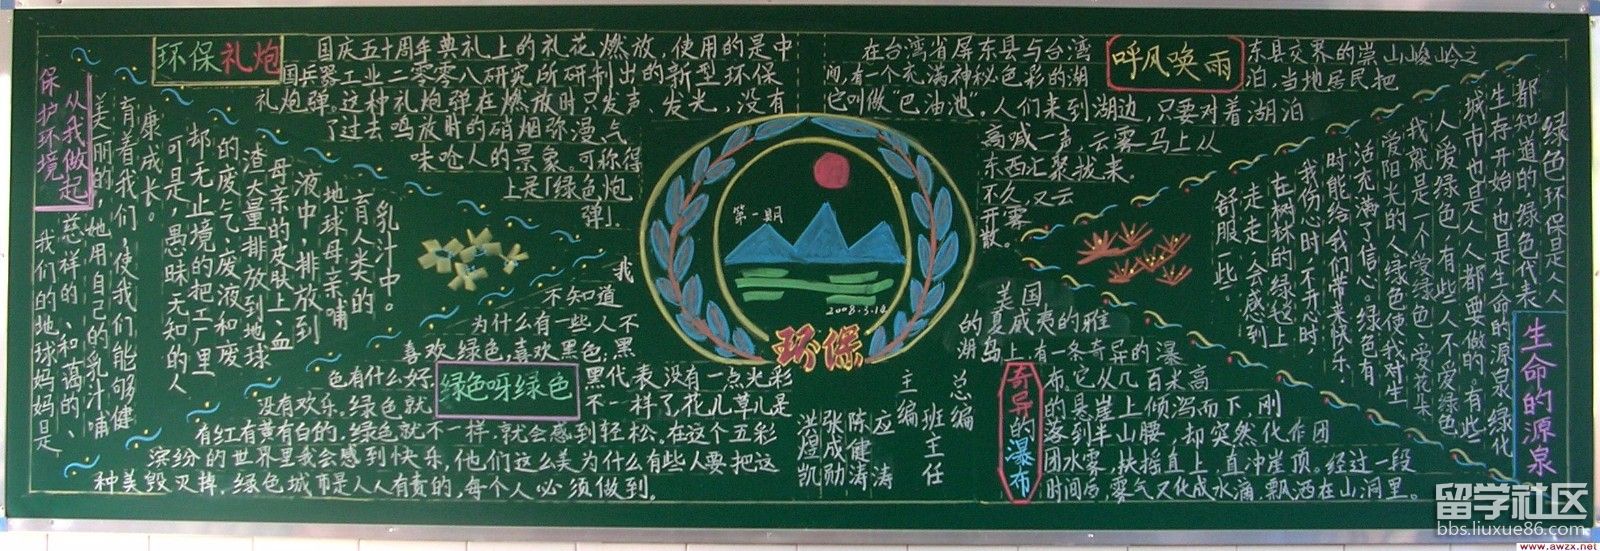 环保礼炮
国庆五十周年典礼上的礼花燃放,使用的是中
国兵器工业二零零八研究所研制出的新型环保
礼炮弹。这种礼炮弹在燃放时只发声、发光,没有
了过去鸣放时的硝烟弥漫气
味呛人的景象。可称得
上是「绿色炮
弹」
呼风唤雨
在台湾省屏东县与台湾
东县交界的崇山峻岭之
间,有一个充满神秘色彩的湖
泊,当地居民把
它叫做“巴油池”。人们来到湖边,只要对着湖泊
高喊一声,云雾马上从
东西汇聚拢来。
不久,又云
开雾
散。
保护环境
从我做起
我们的地球妈妈是
美丽的、慈祥的、和蔼的、
育着我们,使我们能够健
她用自己的乳汁哺
康成长。
可是,愚昧无知的人
却无止境的把工厂里
的废气、废液和废
渣大量排放到地球
母亲的皮肤上、血
液中,排放到
地球母亲哺
育人类的
乳汁中。
第一期
2008.3.14
环保
绿色呀绿色
我
不知道
为什么有一些人不
喜欢绿色,喜欢黑色;黑
色有什么好
黑代表没有一点光彩
没有欢乐。绿色就
不一样了,花儿草儿是
有红有黄有白的,绿色就不一样,就会感到轻松。在这个五彩
滨纷的世界里我会感到快乐,他们这么美为什么有些人要把这
种美毁灭掉,绿色城市是人人有责的,每个人必须做到。
总编
班主任
主编
应涛
陈健涛
张成勋
洪煜凯
奇异的瀑布
美国
的夏威夷的雅
湖岛上有一条奇异的瀑
布。它从几百米高
的悬崖上倾泻而下,刚
落到半山腰,却突然化作团
团水雾,扶摇直上,直冲崖顶。经过一段
时间后,雾气又化成水滴,飘洒在山洞里。
生命的源泉
绿色环保是人人
都知道的,绿色代表
生存开始,也是生命的源泉,绿化
城市也是人人都要做的。有些
人爱绿色,有些人不爱绿色
我就是一个爱绿色、爱花朵
爱阳光的人,绿色使我对生
活充满了信心。绿色有
时能给我们带来快乐,
我份心时,不开心时,
在树林的绿轻上
走一走,会感到
舒服一些。
留学社区
bbs.liuxue86.com
www.awzx.net